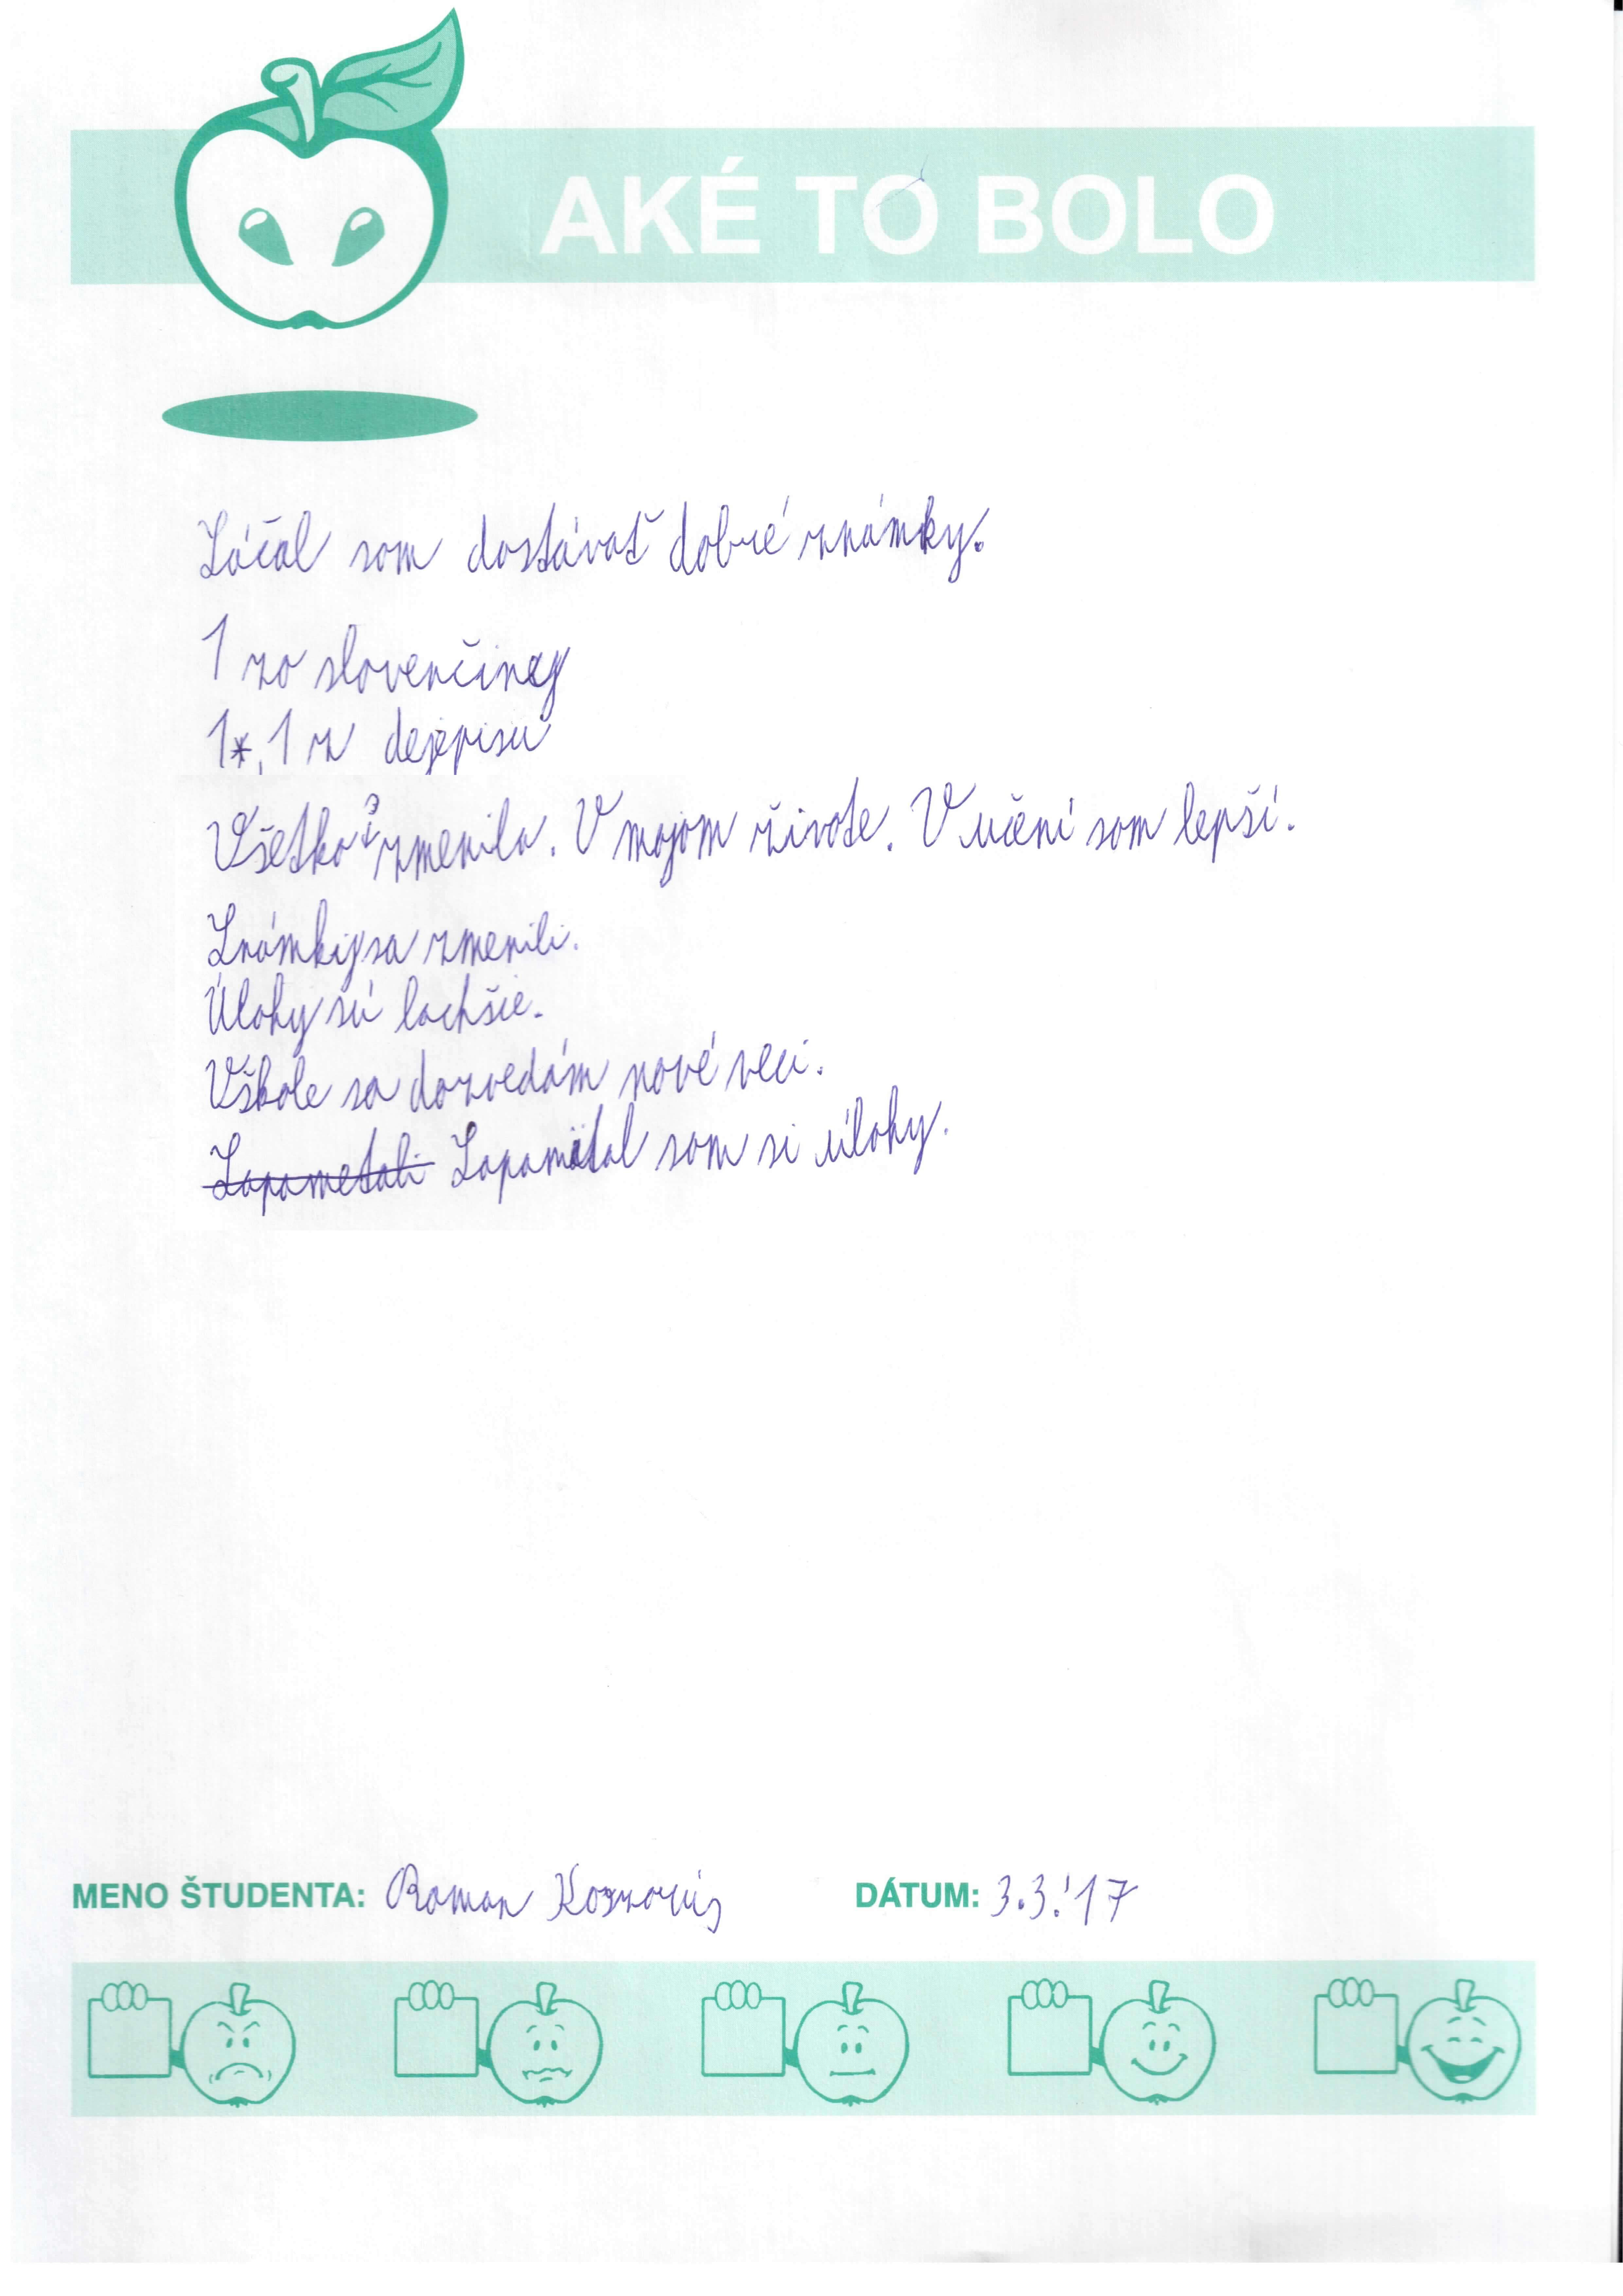 AKÉ TO BOLO
Záčal som dostávať dobré známky.
1 zo slovenčiny
1*, 1 z dejepisu
Všetko zmenilo. V mojom živote. V učení som lepší.
Známky sa zmenili.
Úlohy sú lachšie.
Vškole sa dozvedám nové veci.
Zapametali Zapamätal som si úlohy.
MENO ŠTUDENTA: Roman DÁTUM: 3.3.'17